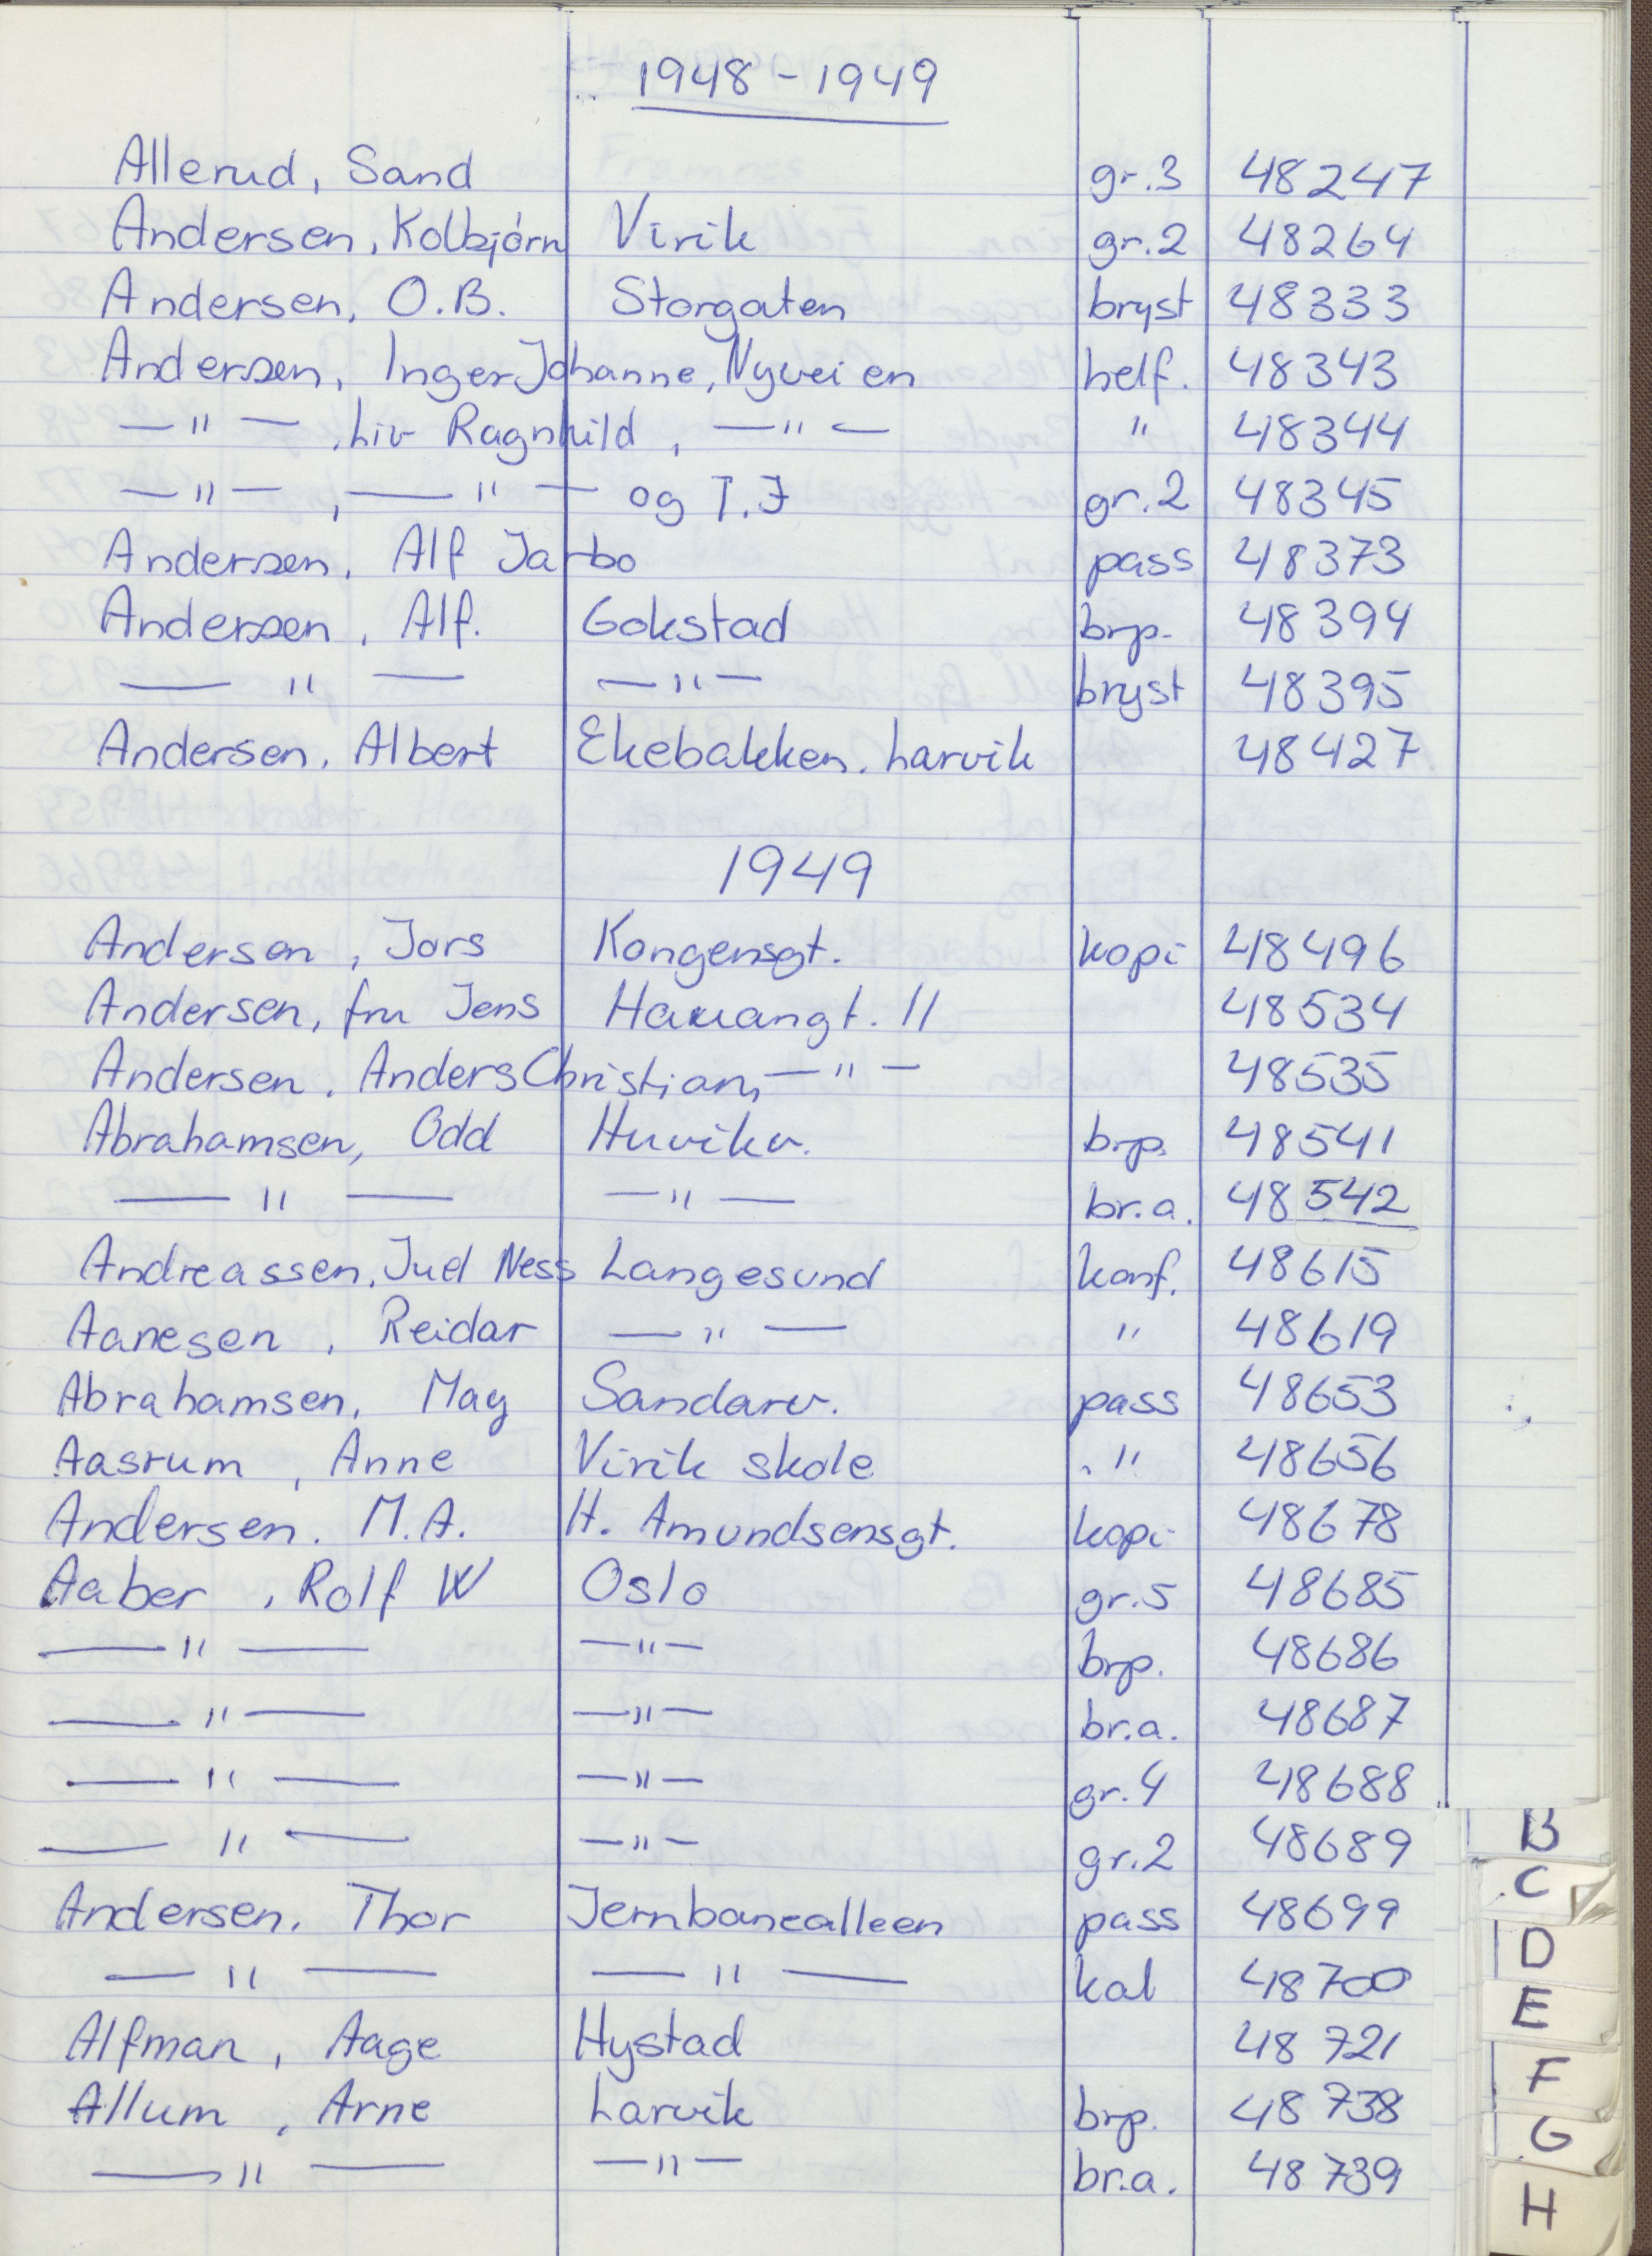 1948-1949
Allerud, Sand gr.3 48247
Andersen, Kolbjørn Virik gr.2 48264
Andersen, O.B. Storgaten bryst 48333
Andersen, Inger Johanne, Nyveien helf. 48343
—"— , Liv Ragnhild, —"— " 48344
—"— , —"— og I.J gr.2 48345
Andersen, Alf Jarbo pass 48373
Andersen, Alf. Gokstad brp. 48394
—"— —"— bryst 48395
Andersen, Albert Ekebakken. Larvik 48427
1949
Andersen, Jørs Kongensgt. kopi 48496
Andersen, fru Jens Hauangt. 11 48534
Andersen. Anders Christian, —"— 48535
Abrahamsen, Odd Huvikv. brp. 48541
—"— —"— br.a. 48542
Andreassen, Juel Ness Langesund konf. 48615
Aanesen, Reidar —"— " 48619
Abrahamsen, May Sandarv. pass 48653
Aasrum, Anne Virik skole " 48656
Andersen. M.A. H. Amundsensgt. kopi 48678
Aaber, Rolf W Oslo gr.5 48685
—"— —"— brp. 48686
—"— —"— br.a. 48687
—"— —"— gr.4 48688
—"— —"— gr.2 48689
Andersen. Thor Jernbanealleen pass 48699
—"— —"— kal 48700
Alfman, Aage Hystad 48721
Allum, Arne Larvik brp. 48738
—"— —"— br.a. 48739
B
C
D
E
F
G
H